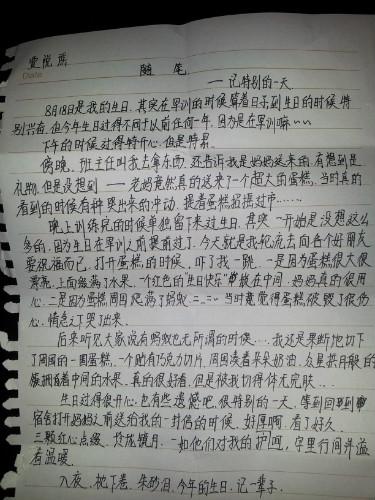 随 笔
Date
——记特别的一天
8月18日是我的生日,其实在军训的时候算着日子到生日的时候特
别兴奋,但今年生日过得不同于以前任何一年,因为是在军训嘛~~
下午的时候过得特开心,但是特累。
傍晚,班主任叫我去拿东西,还告诉我是妈妈送来的,有想到是
礼物,但是没想到——老妈竟然真的送来了一个超大的蛋糕,当时真的
看到的时候有种哭出来的冲动,提着蛋糕招摇过市……
晚上训练完的时候单独留下来过生日,其实一开始是没想这么
多的,因为生日在军训之前提前过了,今天就是我轮流去向各个好朋友
要祝福而已,打开蛋糕的时候,吓了我一跳,一是因为蛋糕很大很
漂亮,上面缀满了水果,一个红色的"生日快乐"带放在中间,妈妈真的很用
心,二是因为蛋糕周围爬满了蚂蚁=.=当时竟觉得蛋糕被毁了很伤
心,情急之下哭了出来。
后来听见大家说有蚂蚁也无所谓的时候……我还是果断地切下
了周围的一圈蛋糕,一个贴有巧克力切片,周围浇着朵朵奶油,众星拱月般的
簇拥着中间的水果,真的很好看,但是被我切得体无完肤...
生日过得很开心,也有些遗憾吧,很特别的一天,等到回到
宿舍打开妈妈之前送给我的一封信的时候,好厚啊,看了好久,
三颗红心点缀,
一如他们对我的
字里行间洋溢
着温暖。
入夜,枕下卷,朱砂泪,今年的生日,记一辈子。